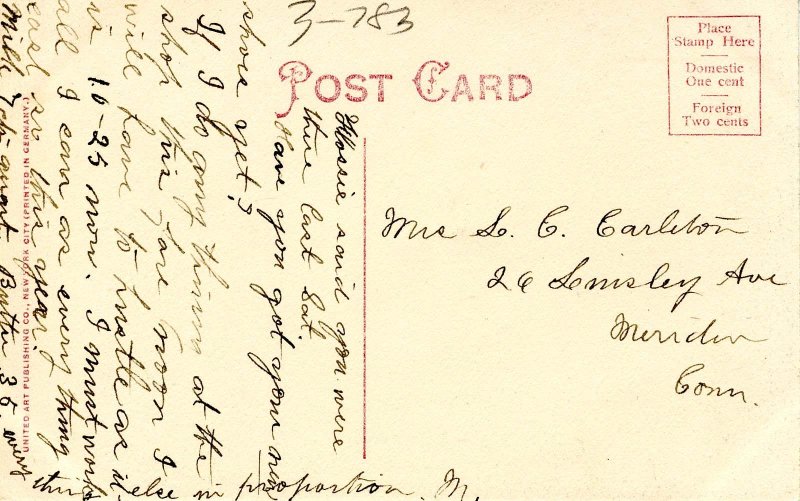 3-783
POST CARD
Place
Stamp Here
Domestic
One cent
Foreign
Two cents
Mrs L. C. Carleton
26 Linsley Ave
Meriden
Conn.
Flossie said you were
there last Sat.
Have you got your new
shoes yet?
If I do anything at the
shop this fore noon I
will have to hustle as it
is 10-25 now. I must work
all I can as every thing
cost so this year.
Milk 9 cts quart Butter 36. every
thing else in proportion. M.
UNITED ART PUBLISHING CO., NEW YORK CITY (PRINTED IN GERMANY.)